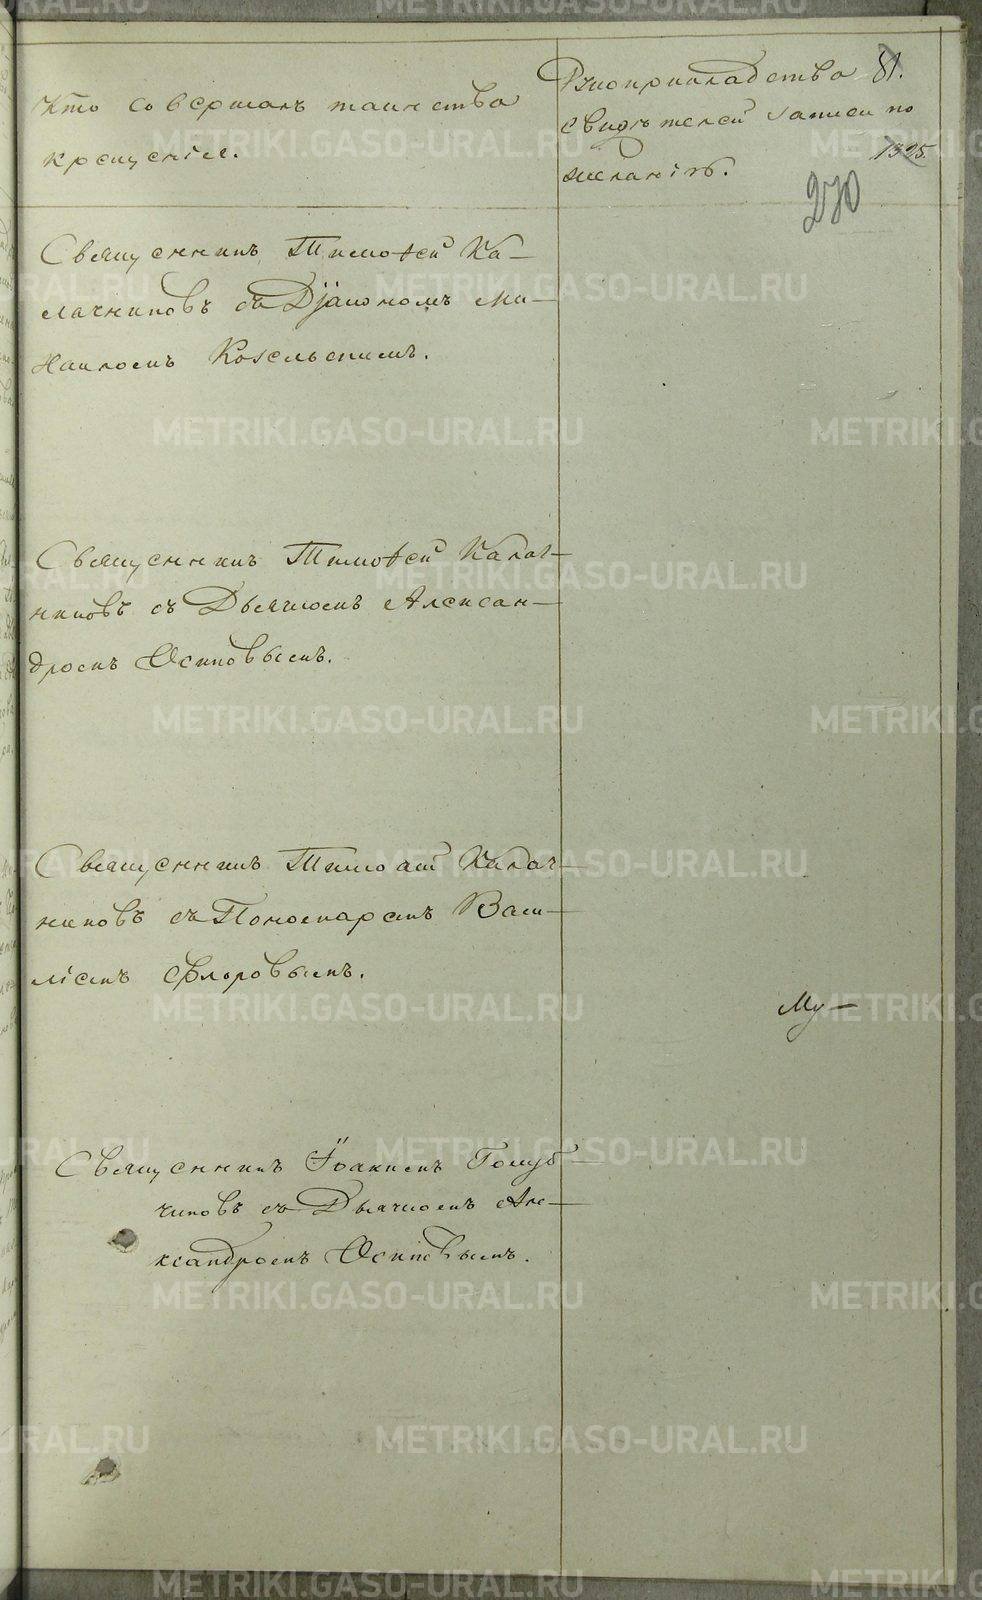 Кто совершалъ таинства
крещенія.
Рукоприкладства 81.
свидѣтелей записи по
желанію. 1395.
270
Священникъ Тимоѳей Ка-
лачниковъ съ Діакономъ Ми-
хаиломъ Козельскимъ.
Священникъ Тимоѳей Калач-
никовъ съ Дьячкомъ Алексан-
дромъ Осиповымъ.
Священникъ Тимоѳей Калач-
никовъ съ Пономаремъ Васи-
ліемъ Флоровымъ.
Му-
Священникъ Іоакимъ Голуб-
чиковъ съ Дьячкомъ Але-
ксандромъ Осиповымъ.
METRIKI.GASO-URAL.RU